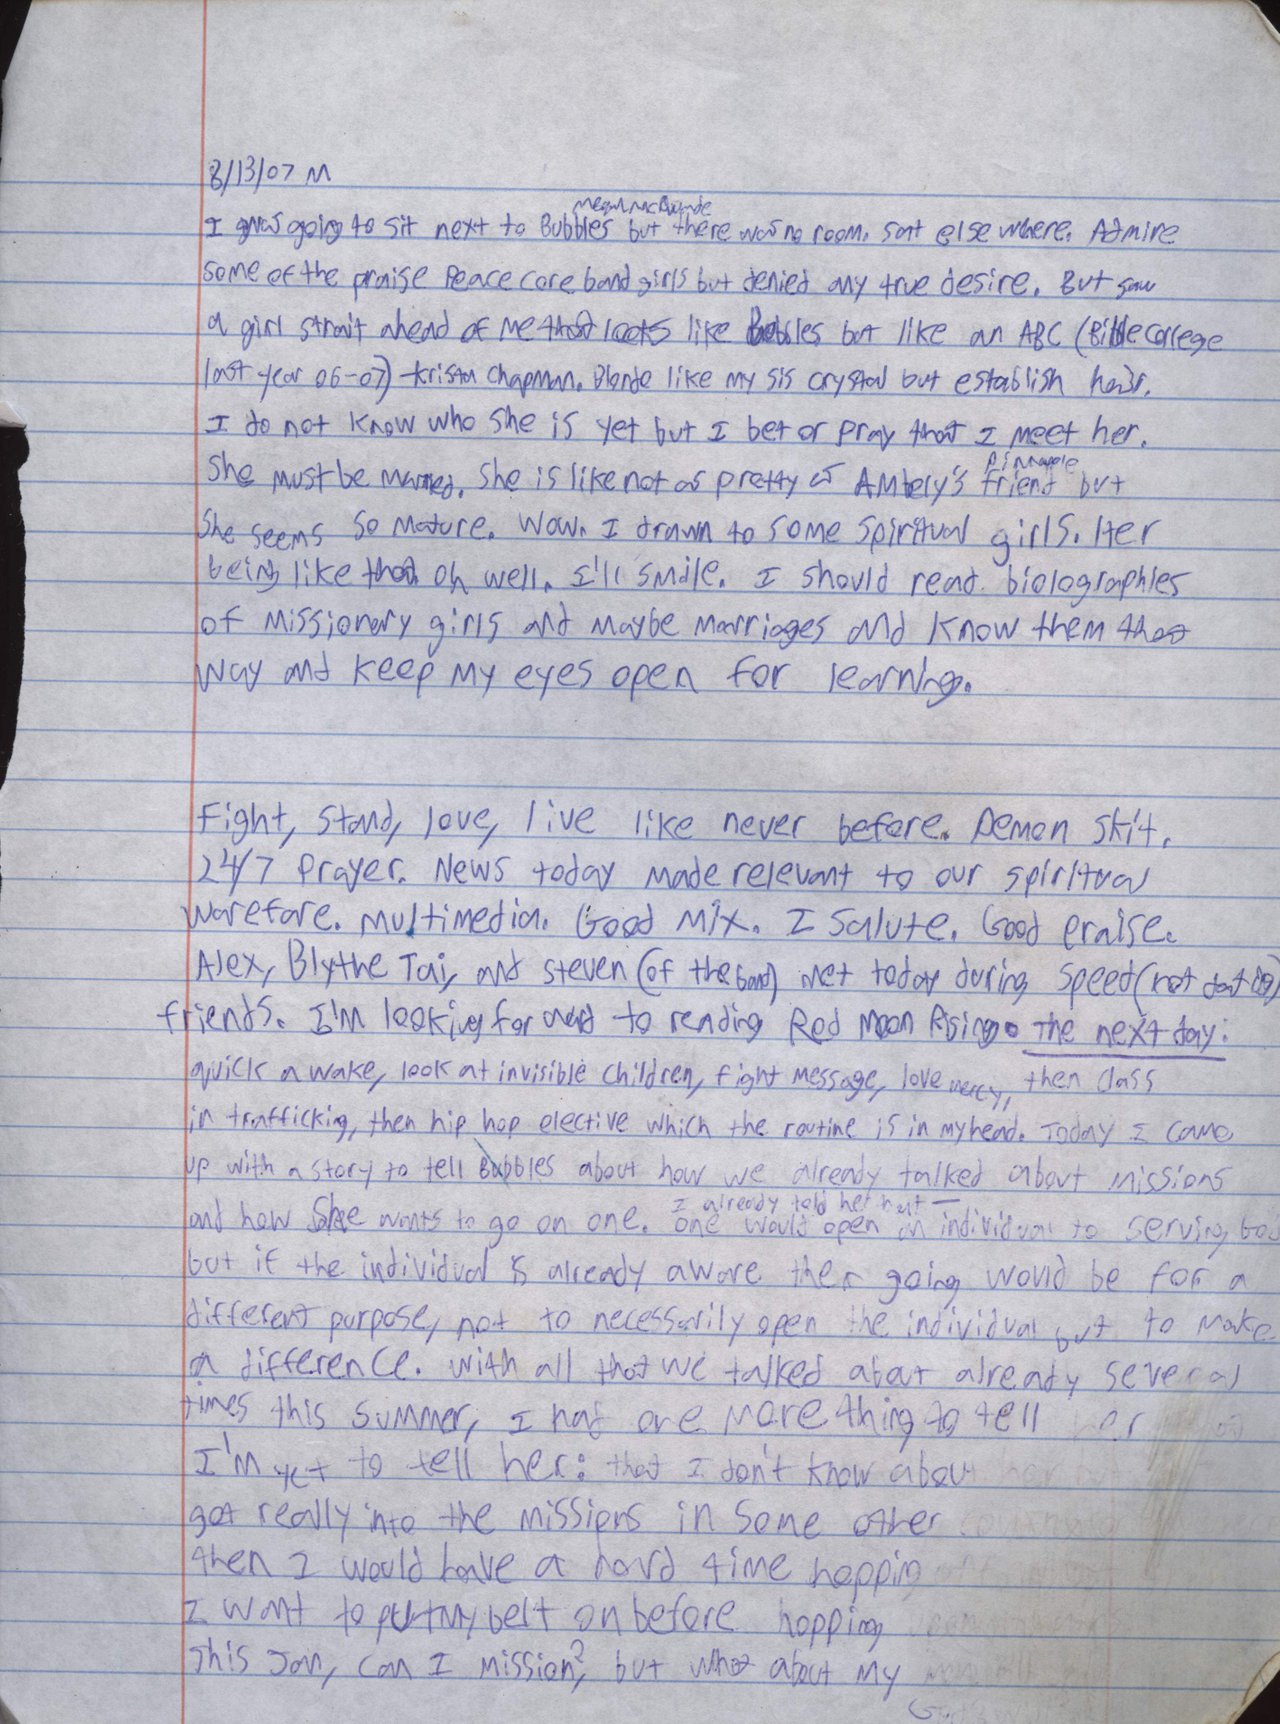 8/13/07 M
I was going to sit next to Bubbles but there was no room. Sat else where. Admire
some of the praise Peace core band girls but denied my true desire. But saw
a girl strait ahead of me that looks like Bubbles but like an ABC (Bible College
last year 06-07) - Krista Chapman. Blonde like my sis crystal but establish hair.
I do not know who she is yet but I bet or pray that I meet her.
Pinnaple
She must be married. She is like not as pretty as Ambery's friend but
she seems so mature. Wow. I drawn to some spiritual girls. Her
being like that. oh well. I'll smile. I should read biolographies
of missionary girls and maybe marriages and know them that
way and keep my eyes open for learning.
Fight, stand, love, live like never before. Demon skit.
24/7 Prayer. News today made relevant to our spiritual
warefare. multimedia. Good mix. I salute. Good praise.
Alex, Blythe Tai, and Steven (of the band) met today during speed (not dating)
friends. I'm looking forward to reading Red Moon Rising. The next day:
quick awake, look at invisible children, fight message, love mercy, then class
in trafficking, then hip hop elective which the routine is in my head. Today I came
up with a story to tell Bubbles about how we already talked about missions
I already told her next —
and how she wants to go on one. one would open an individual to serving God
but if the individual is already aware then going would be for a
different purpose, not to necessarily open the individual but to make
a difference. With all that we talked about already several
times this summer, I had one more thing to tell her
I'm yet to tell her: that I don't know about
got really into the missions in some other
then I would have a hard time hopping
I want to put my belt on before hopping
This Jan, can I mission? but what about my